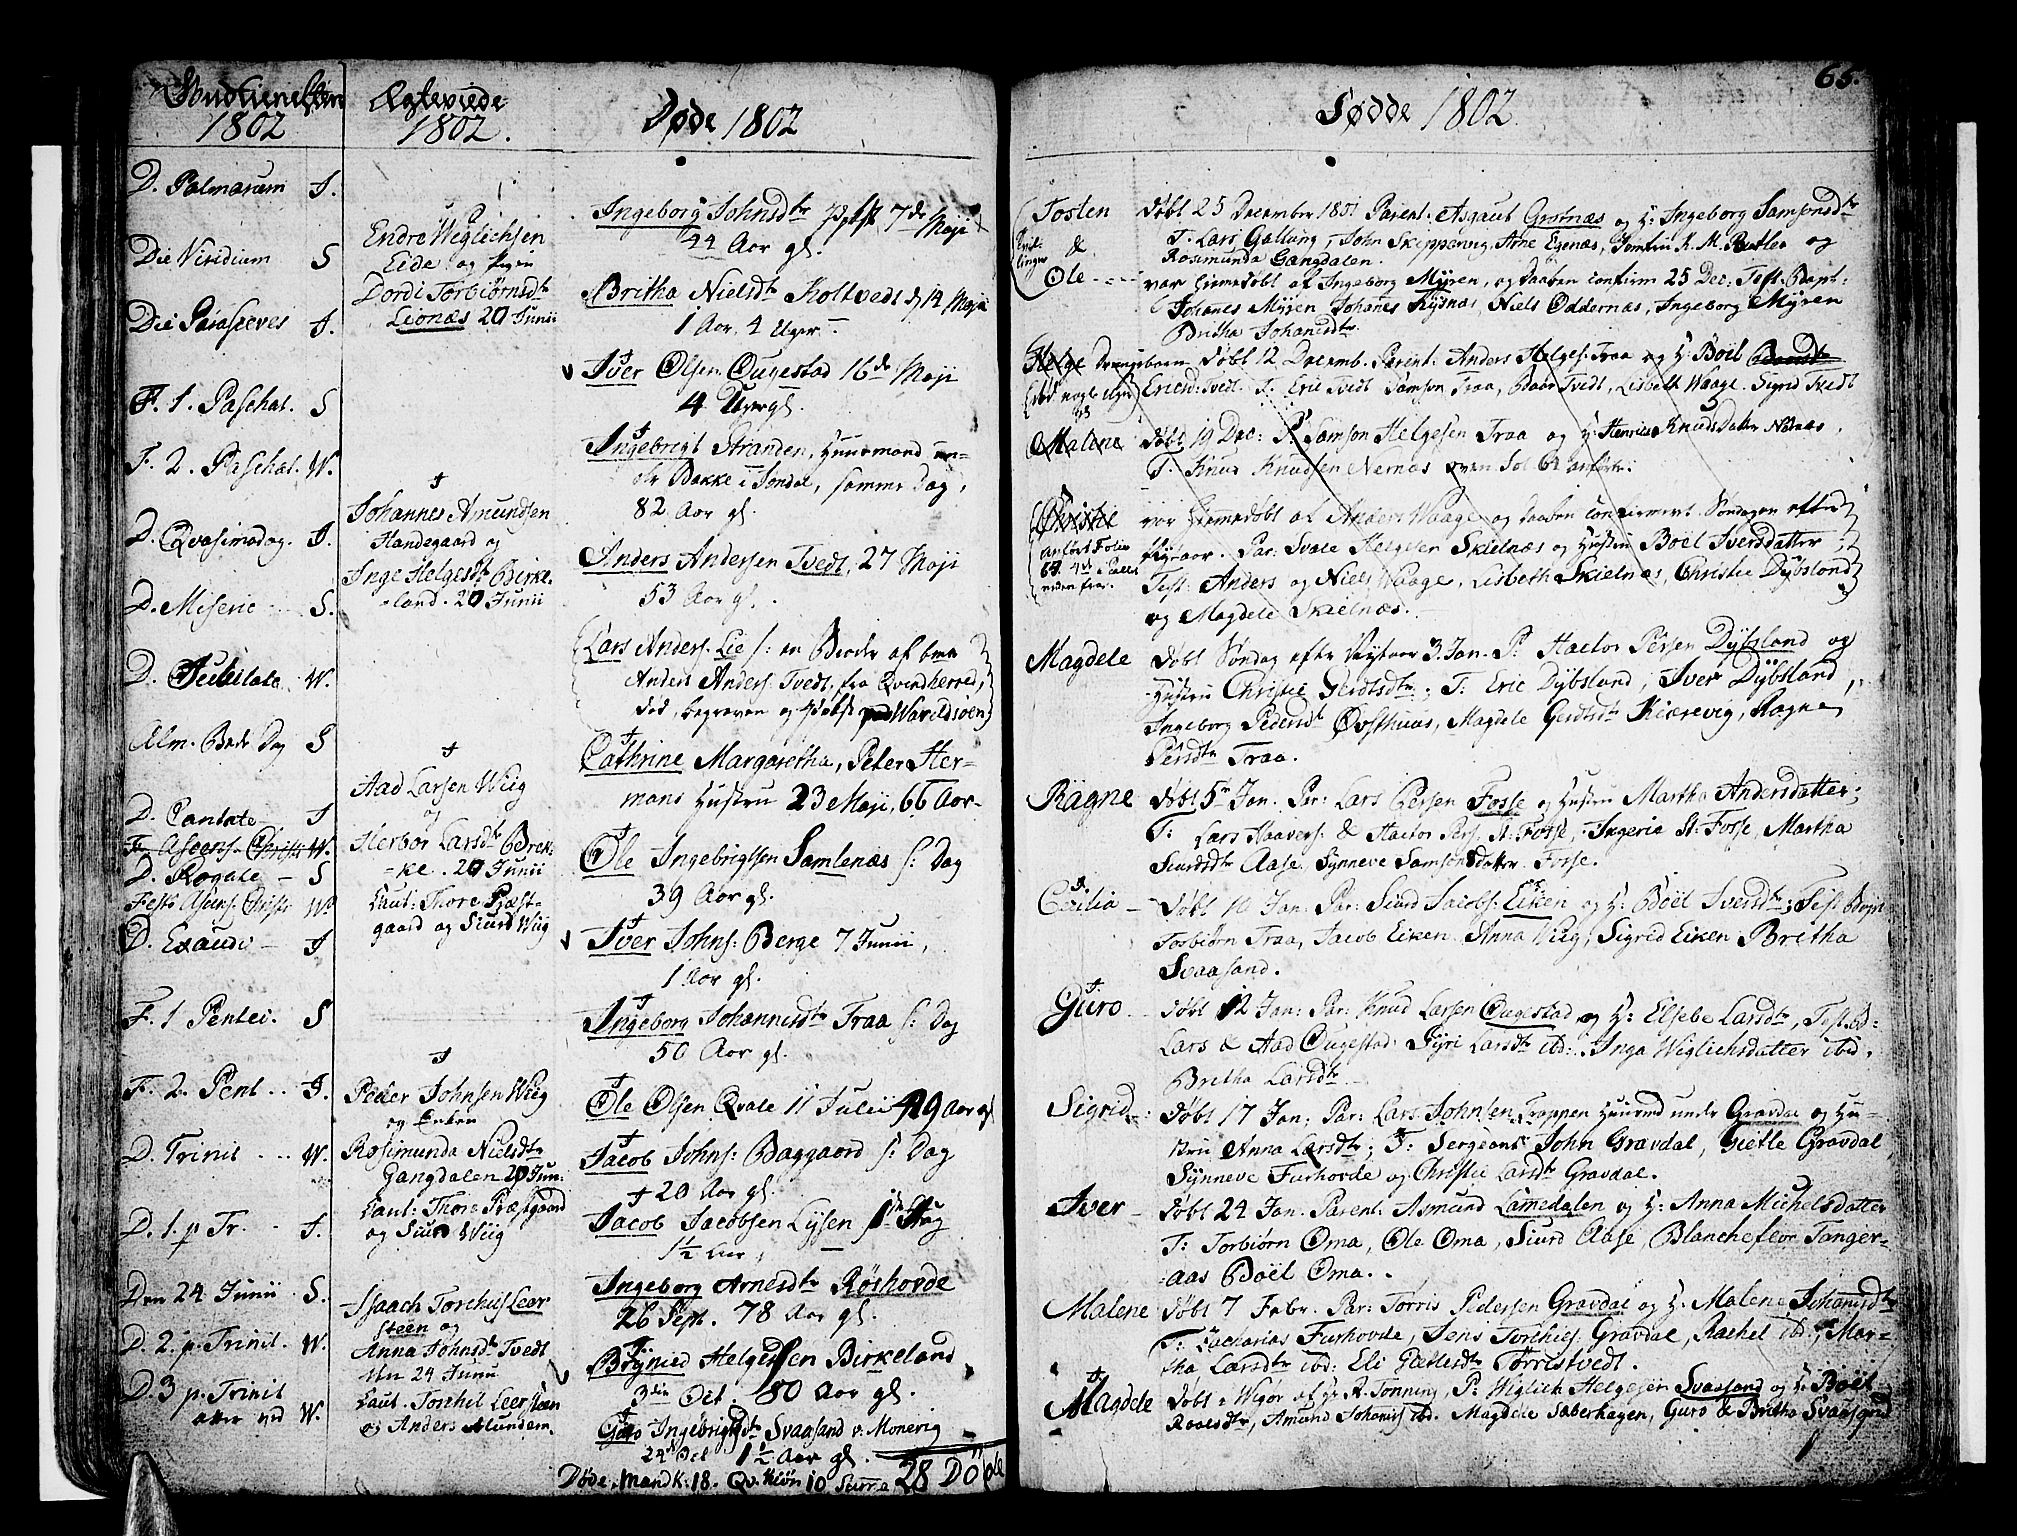 Gudtienesten
1802
D. Palmarum J.
Die Viridium S
Die Parasceves J.
F. 1. Paschat. S
F. 2. Paschat. W.
D. Qvasimodog. J.
D. Miseric S.
D. Jubilate W.
Alm. Bede Dag S
D. Cantate J
F. Ascens. Christi W.
D. Rogate S
Fest. Ascens. Christi W.
D. Exaudi J
F. 1 Pentec. S
F. 2. Pent J.
D. Trinit W.
D. 1. p Tr. J.
Den 24 Junii S.
D. 2. p. Trinit. W.
D. 3 p. Trinit
W.
Ægteviede
1802.
Endre Weglichsen
Eide og Pigen
Dordi Torbiørnsdtr
Lionæs 20 Junii
Johannes Amundsen
Handegaard og
Inge Helgesdtr Birke-
-land. 20 Junii
Aad Larsen Wiig
og
Herbor Larsdtr Brek-
-ke. 20 Junii
Caut: Thore Præst-
gaard og Siurd Wiig
Peder Johnsen Wiig
og Enken
Rosimunda Nielsdtr
Gangdalen 20 Jun:
Caut: Thore Præstgaard
og Siurd Wiig
Isaach Torchils Leer
steen og
Anna Johnsdtr Tvedt
den 24 Junii
Caut. Torchil Leersteen
og Anders Alundem.
Døde 1802
Ingeborg Johnsdtr 7de Maji
44 Aar gl.
Britha Nielsdtr Koltvedt d. 14 Maji
1 Aar, 4 Uger
Iver Olsen Ougestad 16de Maji
4 Uger gl.
Ingebrigt Stranden, Huusmand un-
der Bakke i Jondal, samme Dag,
82 Aar gl.
Anders Andersen Tvedt, 27 Maji
53 Aar gl.
Lars Anders. Lie /: en Broder af bem
Anders Anders: Tvedt, fra Qvindherred,
død, begraven og paa Waraldsøen
Cathrine Margaretha, Peter Her-
mans Hustru 23 Maji, 66 Aar
Ole Ingebrigtsen Samlenæs s: Dag
39 Aar gl.
Iver Johns: Berge 7 Junii,
1 Aar gl.
Ingeborg Johannisdtr Traa s: Dag
50 Aar gl.
Ole Olsen Qvale 11 Julii 49 Aar gl
Jacob Johns: Baggaard s: Dag
20 Aar gl.
Jacob Jacobsen Lysen
1½ Aar
Ingeborg Arnesdtr Røshovde
26 Sept. 78 Aar gl.
Brynild Helgessen Birkeland
3die Oct. 80 Aar gl.
Guro Ingebrigtsdtr Svaasand v: Monevig
24 Oct 1½ Aar gl.
Døde, Mandk: 18. Qv. Kiøn 10 Summa 28 Døde
65.
Fødde 1802
Tosten døbt 25 December 1801 Parent: Asgaut Grotnæs og H: Ingeborg Samsonsdtr
Tvil- & T: Lars Gallung, John Skippevig, Arne Egenæs, Jomfru K. M. Butler og
linger Rosimunda Gangdalen.
Ole var hiemedøbt af Ingeborg Myren, og Daaben confirm 25 Dec: Test: Bapt:
Johanes Myren Johanes Rysnæs, Niels Oddernæs, Ingeborg Myren
Britha Johanisdtr
Helge Drengebarn døbt 12 Decemb. Parent: Anders Helges: Traa og H: Boël
Ericsd: Tvedt. T: Eric Tvedt Samson Traa, Baar Tvedt, Lisbeth Waage. Sigrid Tvedt
Malene døbt 19 Dec: P: Samson Helgesen Traa og H: Henrica Knuds Datter Nernæs,
T. Knud Knudsen Nernæs oven Fol 64 anført:
Christie var hiemedøbt af Anders Waage og Daaben confirmeret Søndagen efter
anført Folio Nytaar. Par: Svale Helgesen Skielnæs og Hustru Boël Iversdatter
Test: Anders og Niels Waage, Lisbeth Skielnæs, Christie Dybsland
og Magdele Skielnæs.
Magdele døbt Søndag efter Nytaar 3. Jan. P: Hactor Persen Dybsland og
Hustru Christie Gerdtsdtr; T: Eric Dybsland, Iver Dybsland,
Ingeborg Pedersdtr Øvsthuus, Magdele Gerdtsdtr Kierevig, Ragne
Persdtr Traa.
Ragne døbt 5te Jan. Par: Lars Persen Fosse og Hustru Martha Andersdatter;
T: Lars Haavers: & Hactor Pers. St: Fosse, Ingeria St: Fosse, Martha
Siursdtr Aase, Synneve Samsonsdatter Fosse.
Cicilia døbt 10 Jan: Par: Siurd Jacobs: Eiken og H: Boël Iversdtr; Test Bapt
Torbiørn Traa, Jacob Eiken Anna Wiig, Sigrid Eiken Britha
Svaasand.
Guro døbt 12 Jan: Par: Knud Larsen Ougestad og H: Elsebe Larsdtr, Test:
Lars & Aad Ougestad: Gyri Larsdtr ibd: Inga Wiglichsdatter ibid.
Britha Larsdtr
Sigrid døbt 17 Jan; Par: Lars Johnsen Trappen Huusmd under Gravdal og Hu-
stru Anna Larsdtr; T: Sergeant John Gravdal, Gietle Gravdal
Synneve Furhovde og Christie Larsdtr Gravdal.
Iver døbt 24 Jan. Parent. Asmund Lammedalen og H: Anna Michelsdatter
T: Torbiørn Oma, Ole Oma, Siurd Aase, Blancheflor Tanger-
aas Boël Oma.
Malene døbt 7 Febr. Par: Torris Pedersen Gravdal og H. Malene Johanisdtr
T: Zacharias Furhovde, Jens Torchils: Gravdal, Rachel ibd:, Mar-
tha Larsdtr ibd: Eli Gietlesdtr Tørristvedt.
Magdele døbt i Wigør af Hr R. Tonning, P: Wiglich Helgesen Svaasand og H: Boël
Roalsdtr, Amund Johanis: ibd. Magdele Saberhagen, Guro & Britha Svaasand